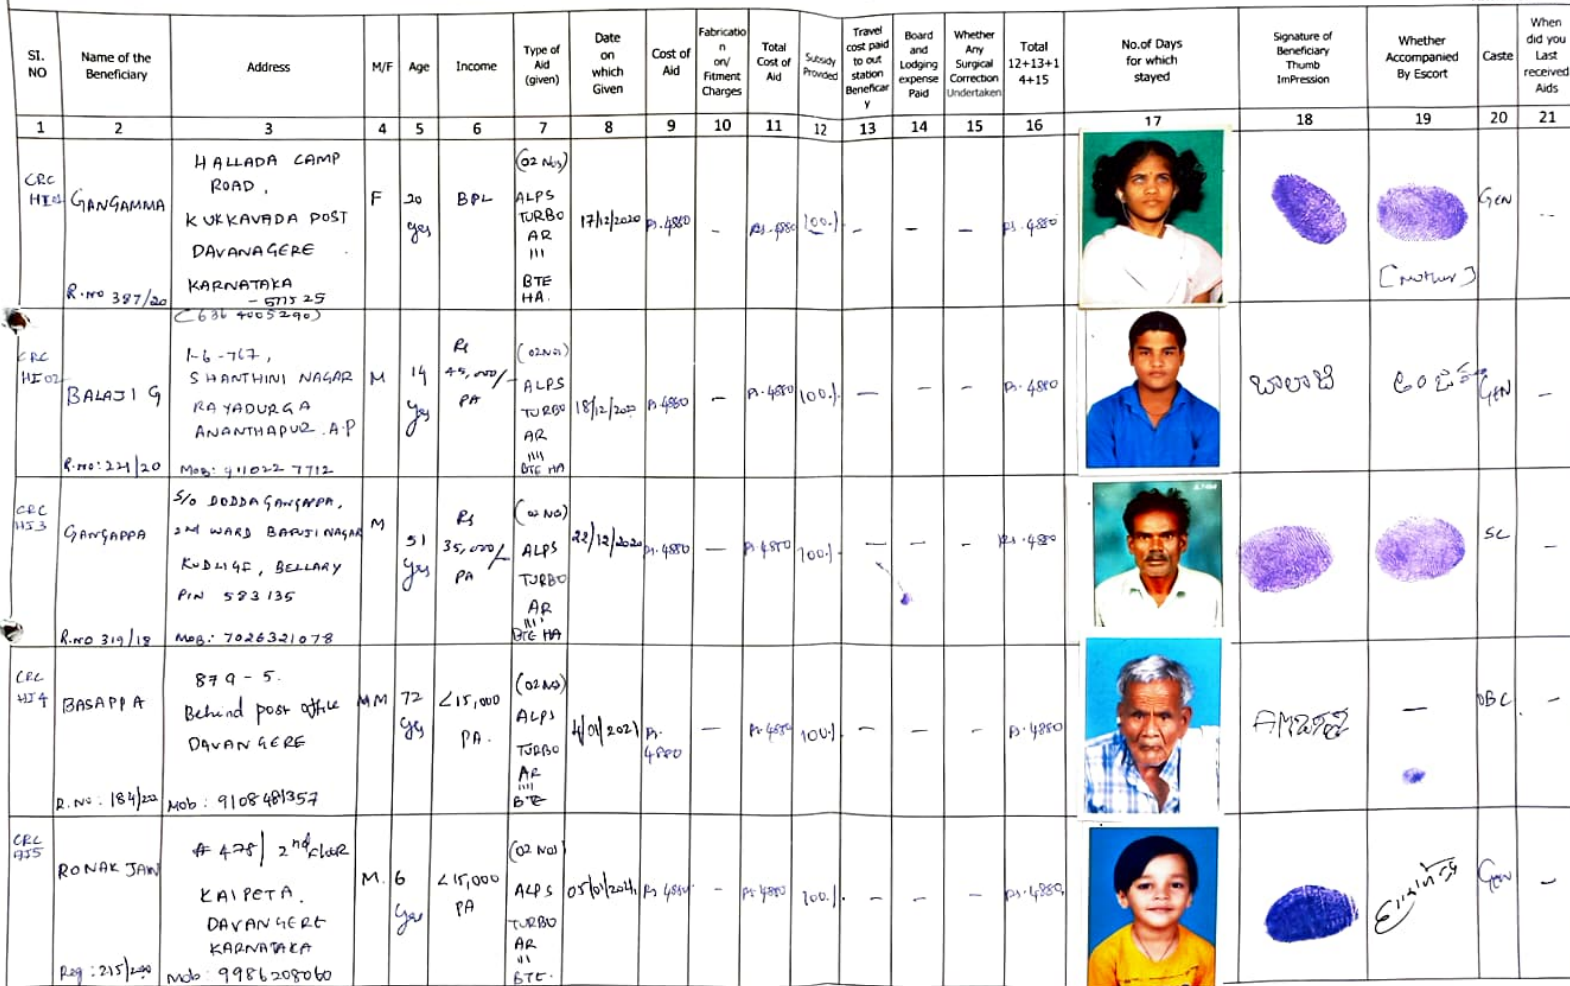 SI. NO
Name of the Beneficiary
Address
M/F
Age
Income
Type of Aid (given)
Date on which Given
Cost of Aid
Fabrication on/ Fitment Charges
Total Cost of Aid
Subsidy Provided
Travel cost paid to out station Beneficary
Board and Lodging expense Paid
Whether Any Surgical Correction Undertaken
Total 12+13+14+15
No.of Days for which stayed
Signature of Beneficiary Thumb ImPression
Whether Accompanied By Escort
Caste
When did you Last received Aids
1 2 3 4 5 6 7 8 9 10 11 12 13 14 15 16 17 18 19 20 21
CRC
HI01
GANGAMMA
R.no 387/20
HALLADA CAMP
ROAD,
KUKKAVADA POST
DAVANAGERE
KARNATAKA
(636 4005290)
F
20
yes
BPL
(02 Nos)
ALPS
TURBO
AR
BTE
HA.
17/12/2020
Rs.4880
-
Rs.4880
100.
-
-
-
Rs.4880
[mother]
Gen
--
CRC
HI02
BALAJI G
R.no: 221/20
1-6-767,
SHANTHINI NAGAR
RAYADURGA
ANANTHAPUR. A.P
M
14
yes
Rs
45,000/-
PA
(02 Nos)
ALPS
TURBO
AR
BTE HA
Rs.4880
-
Rs.4880
100.
-
-
-
Rs.4880
ಬಾಲಾಜಿ
Gen
-
CRC
HI3
GANGAPPA
R.no 319/18
S/o DODDAGANGAPPA,
2nd WARD BAPUJI NAGAR
KUDLIGE, BELLARY
PIN 583135
Mob: 7026321078
M
51
yes
Rs
35,000/-
PA
(02 Nos)
ALPS
TURBO
AR
BTE HA
22/12/2020
Rs.4880
-
Rs.4880
100.
-
-
-
Rs.4880
SC
-
CRC
HI4
BASAPPA
R.No: 184/20
879-5.
Behind post office
DAVANGERE
Mob: 9108481357
M
72
yes
<15,000
PA.
(02 Nos)
ALPS
TURBO
AR
BTE
4/01/2021
Rs.
4880
-
Rs.4880
100.
-
-
-
Rs.4880
-
OBC
-
CRC
RONAK JAIN
# 478/ 2nd Floor
KAIPETA.
DAVANGERE
KARNATAKA
Mob: 9986208060
M.
6
yes
<15,000
PA
(02 Nos)
ALPS
TURBO
AR
BTE.
05/01/2021
Rs.4880
-
Rs.4880
100.
-
-
-
Rs.4880
Gen
-